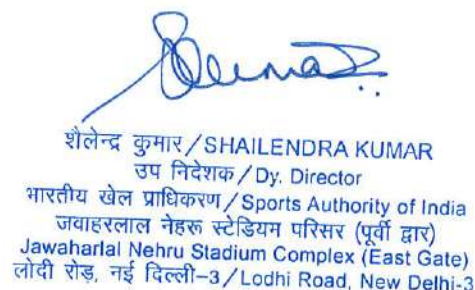 शैलेन्द्र कुमार/SHAILENDRA KUMAR
उप निदेशक/Dy. Director
भारतीय खेल प्राधिकरण/Sports Authority of India
जवाहरलाल नेहरू स्टेडियम परिसर (पूर्वी द्वार)
Jawaharlal Nehru Stadium Complex (East Gate)
लोदी रोड़, नई दिल्ली–3/Lodhi Road, New Delhi-3